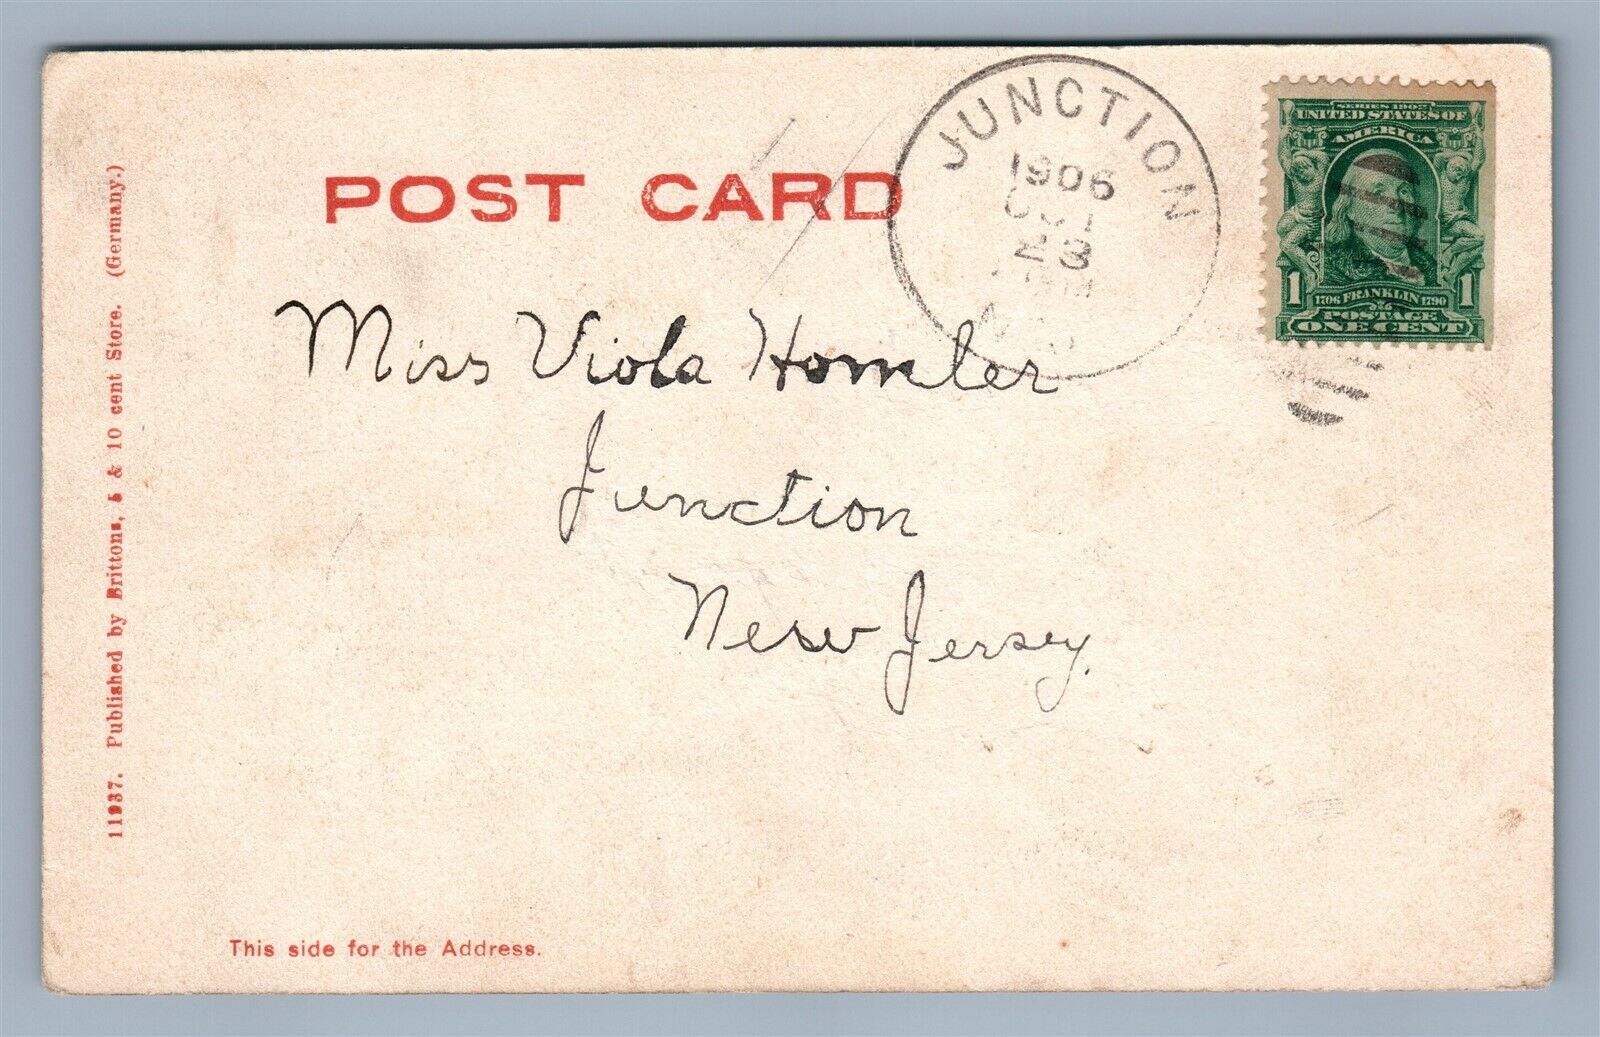 POST CARD
JUNCTION
1906
OCT
23
N.J.
SERIES 1902
UNITED STATES OF
AMERICA
1 1706 FRANKLIN 1790 1
POSTAGE
ONE CENT
Miss Viola Homler
Junction
New Jersey.
11937. Published by Brittons, 5 & 10 cent Store. (Germany.)
This side for the Address.